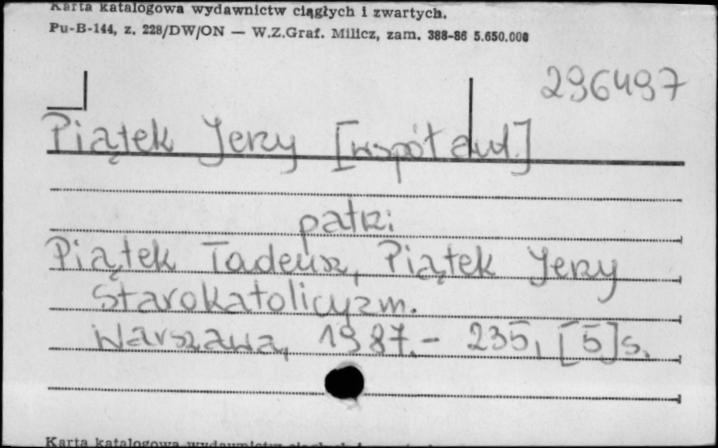 Karta katalogowa wydawnictw ciągłych i zwartych.
Pu-B-144, z. 228/DW/ON — W.Z.Graf. Milicz, zam. 388-86 5.650.000
296497
Piątek Jerzy [współaut.]
patrz:
Piątek Tadeusz, Piątek Jerzy
Starokatolicyzm.
Warszawa, 1987.- 235, [5]s.
Karta katalogowa wydawnictw ciągłych i